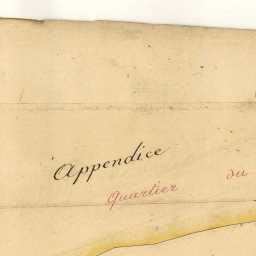 Appendice
Quartier du